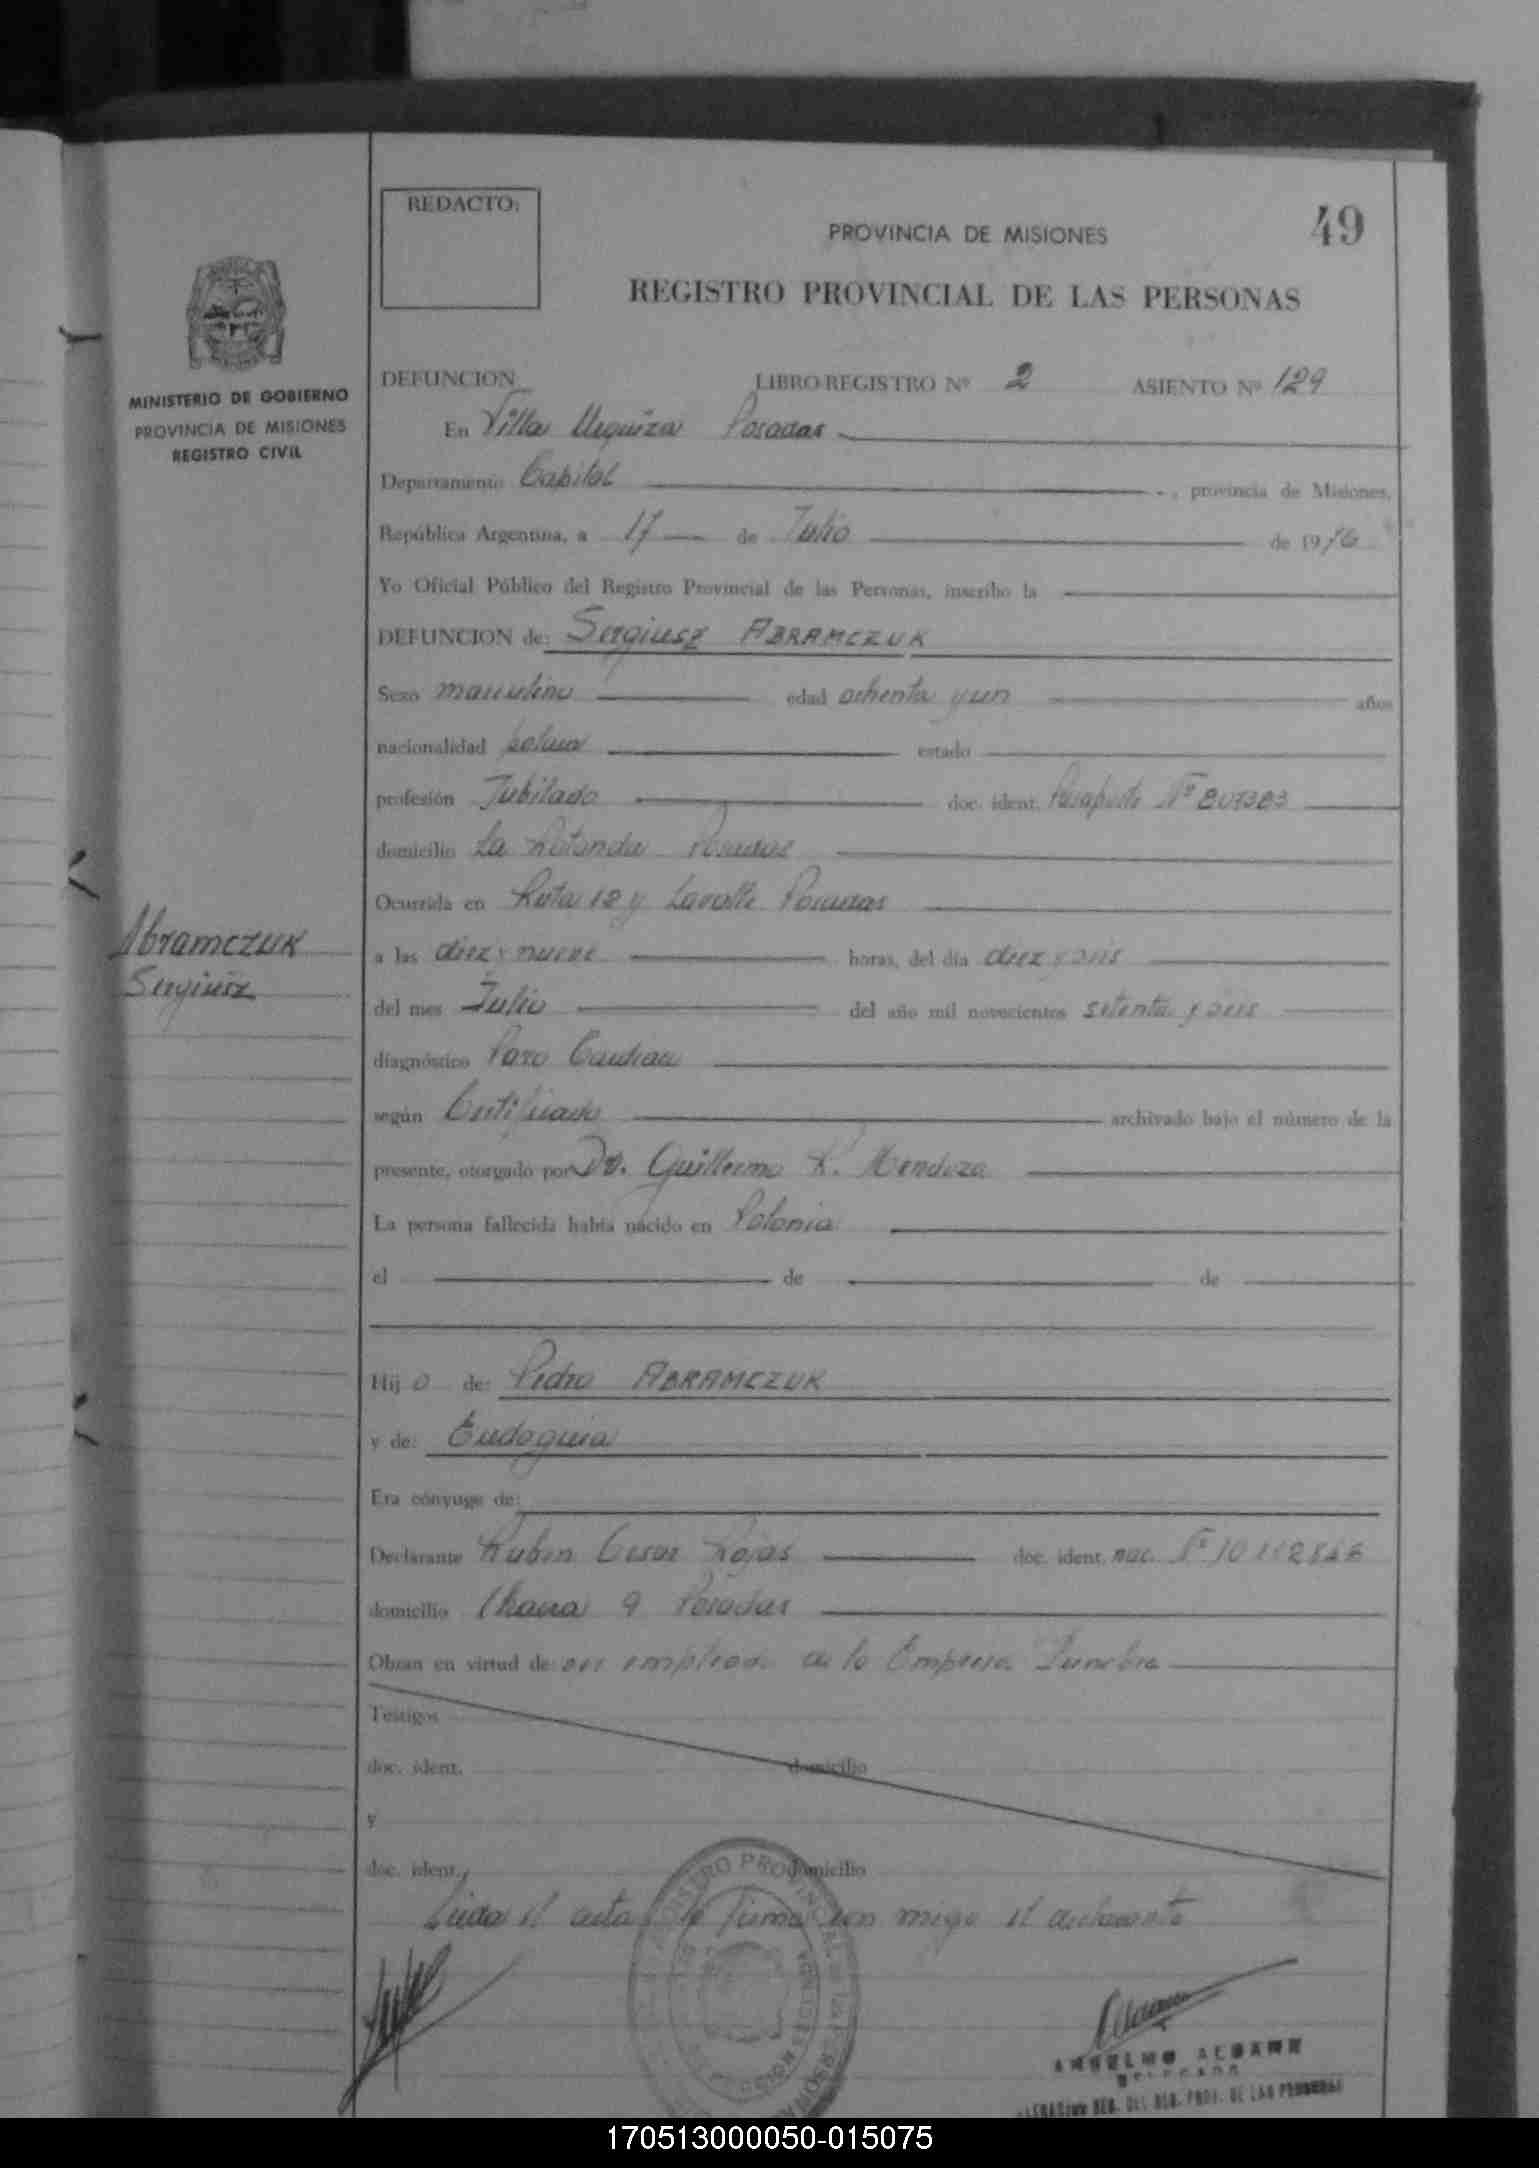 REDACTO:
49
PROVINCIA DE MISIONES
REGISTRO PROVINCIAL DE LAS PERSONAS
MINISTERIO DE GOBIERNO
PROVINCIA DE MISIONES
REGISTRO CIVIL
DEFUNCION LIBRO REGISTRO Nº 2 ASIENTO Nº 129
En Villa Urquiza Posadas
Departamento Capital , provincia de Misiones,
República Argentina, a 17 de Julio de 1976
Yo Oficial Público del Registro Provincial de las Personas, inscribo la
DEFUNCION de: Sergiusz ABRAMCZUK
Sexo masculino edad ochenta y un años
nacionalidad polaca estado
profesión Jubilado doc. ident. Pasaporte Nº 807383
domicilio La Rotonda Posadas
Ocurrida en Ruta 12 y Lavalle Posadas
Abramczuk
Sergiusz
a las diez y nueve horas, del día diez y seis
del mes Julio del año mil novecientos setenta y seis
diagnóstico Paro Cardiaco
según Certificado archivado bajo el número de la
presente, otorgado por Dr. Guillermo R. Mendoza
La persona fallecida había nacido en Polonia
el de de
Hijo de: Pedro ABRAMCZUK
y de: Eudoguia
Era cónyuge de:
Declarante Ruben Cesar Rojas doc. ident. nac. Nº
domicilio 9 Posadas
Obran en virtud de: ser empleado de la Empresa Funebre
Testigos
doc. ident. domicilio
y
doc. ident. domicilio
Leida el acta la firma con migo el declarante
REGISTRO PROVINCIAL DE LAS PERSONAS
MISIONES
ANSELMO
DELEGADO
REG. DEL REG. PROV. DE LAS PERSONAS
170513000050-015075